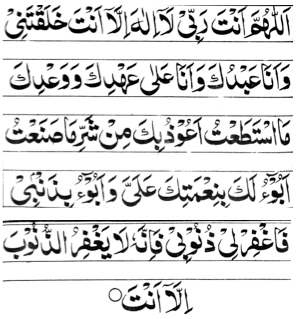 اَللّٰهُمَّ اَنْتَ رَبِّیْ لَآ اِلٰهَ اِلَّآ اَنْتَ خَلَقْتَنِیْ
وَاَنَا عَبْدُكَ وَاَنَا عَلٰی عَهْدِكَ وَوَعْدِكَ
مَا اسْتَطَعْتُ اَعُوْذُ بِكَ مِنْ شَرِّ مَا صَنَعْتُ
اَبُوْٓءُ لَكَ بِنِعْمَتِكَ عَلَیَّ وَ اَبُوْٓءُ بِذَنْۢبِیْ
فَاغْفِرْ لِیْ ذُنُوْبِیْ فَاِنَّهٗ لَا یَغْفِرُ الذُّنُوْبَ
اِلَّآ اَنْتَ○